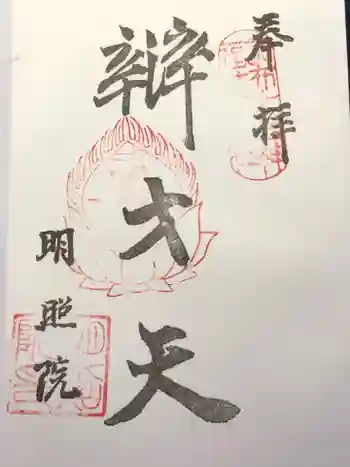 奉拝
辨才天
明照院